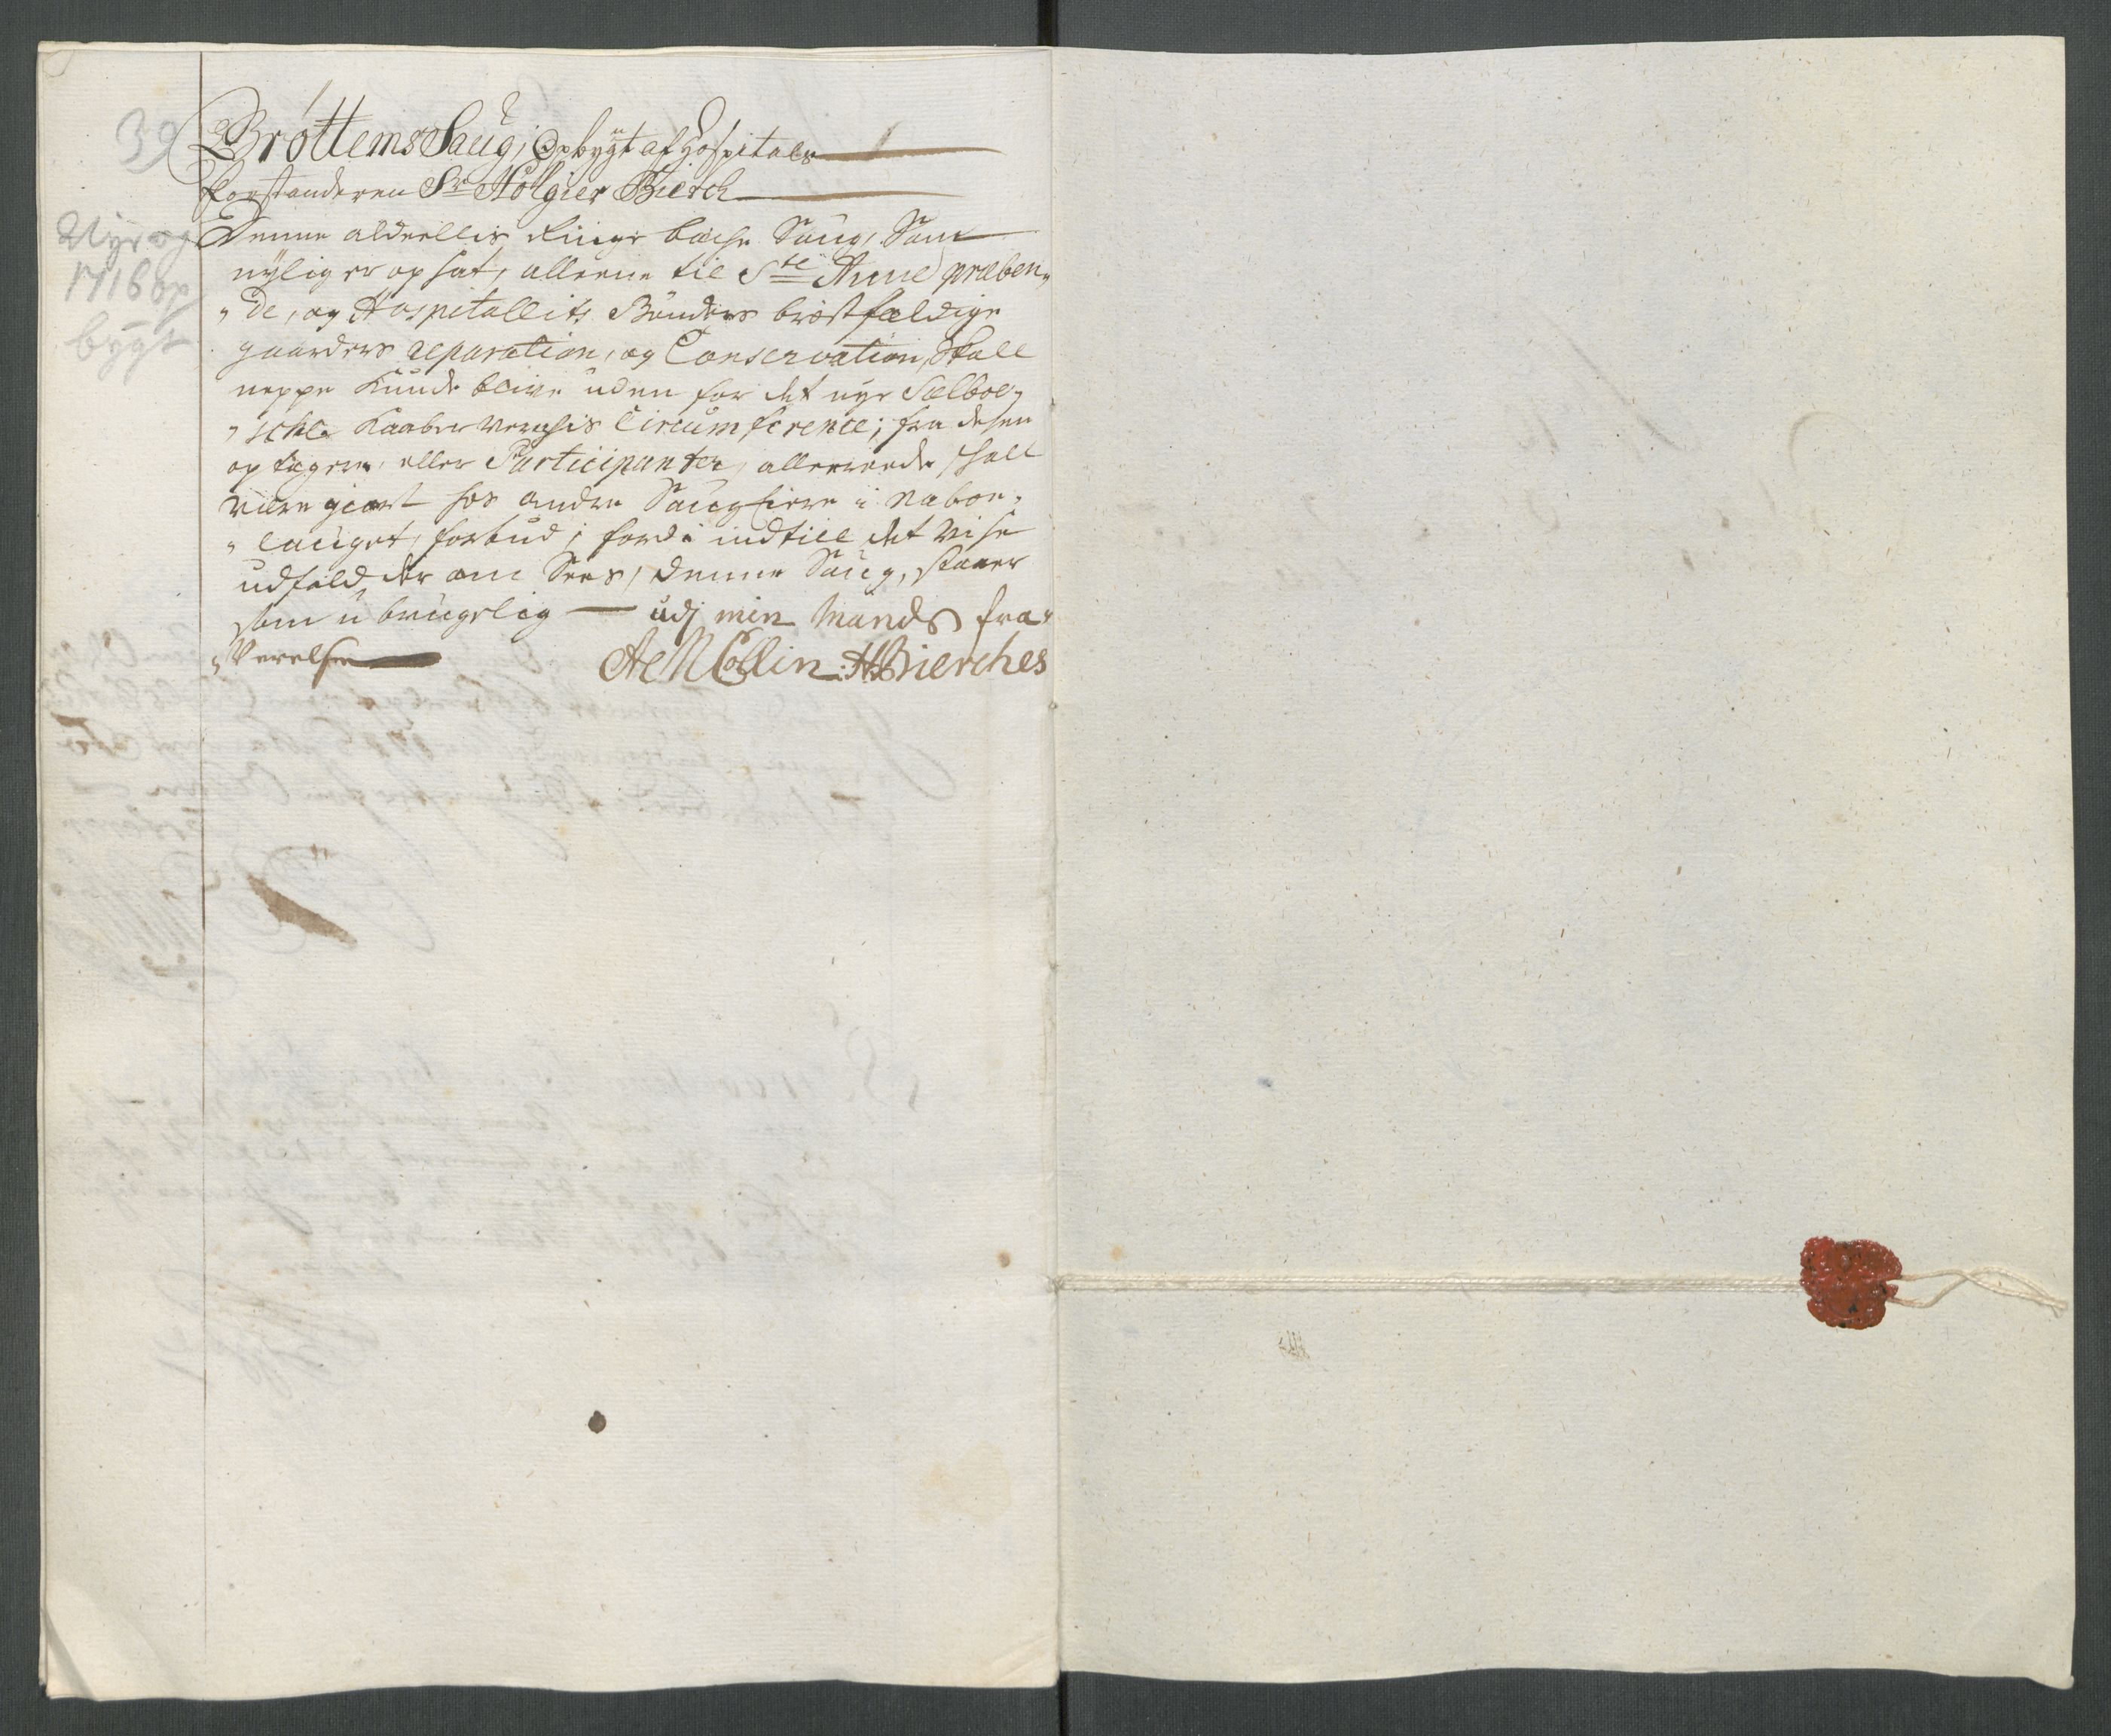 39
Brøttems Saug; Opbÿgt af Hospitals
forstanderen Sr Holgier Bierch
Nÿe og
1716 op
bÿgt
Denne alderellis ringe bæche Saug, Som
nÿlig er op sat, alleene til Ste Anne præben„
„de, og Hospitallits Bønders brøstfældige
gaarders reparation, og Conservation, Skall
neppe kunde blive uden for det nÿe Sælboe„
„schle Kaaber verchis Circumference; fra desen
optagere, eller Participanter, allereede schall
være giort hos andre Saug Eiere i naboe„
„lauget, forbud; fordi indtill det vise
udfald der om Sees, denne Saug, staaer
som ubrugelig — udj min Mands fra„
„Værelse
AeM Collin: HBierches